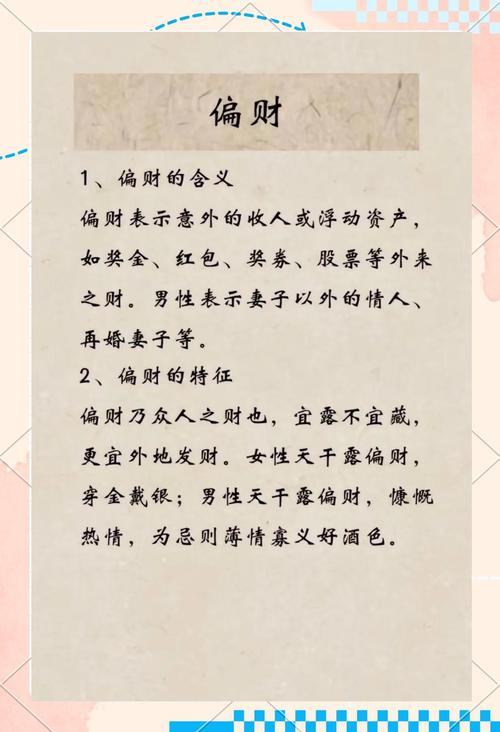 偏财
1、偏财的含义
偏财表示意外的收人或浮动资产，
如奖金、红包、奖券、股票等外来
之财。男性表示妻子以外的情人、
再婚妻子等。
2、偏财的特征
偏财乃众人之财也，宜露不宜藏，
更宜外地发财。女性天干露偏财，
穿金戴银；男性天干露偏财，慷慨
热情，为忌则薄情寡义好酒色。